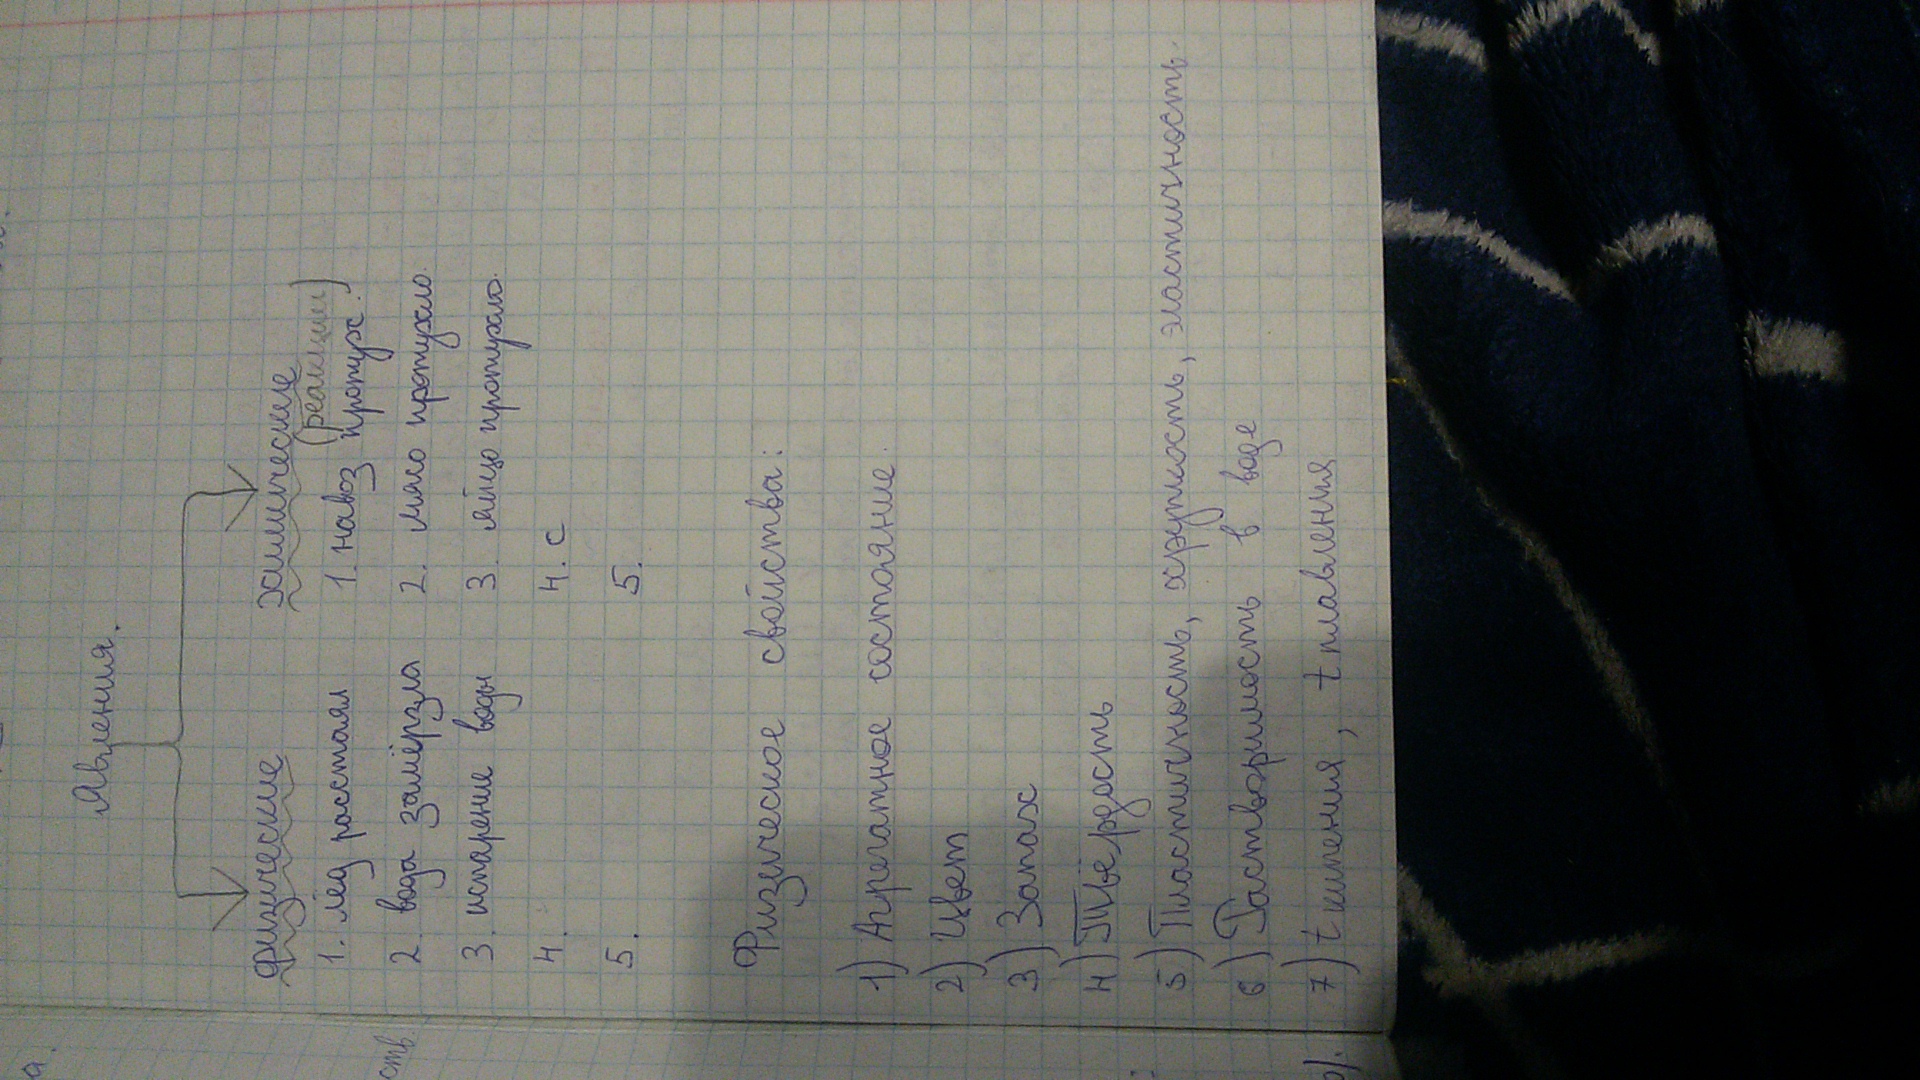 Явления.
физические химические
(реакции)
1. лёд растаял 1. навоз протух.
2. вода замёрзла 2. мясо протухло.
3. испарение воды 3. яйцо протухло.
4. 4. с
5. 5.
Физические свойства:
1) Агрегатное состояние.
2) Цвет
3) Запах
4) Твёрдость
5) Пластичность, хрупкость, эластичность.
6) Растворимость в воде
7) t кипения, t плавления